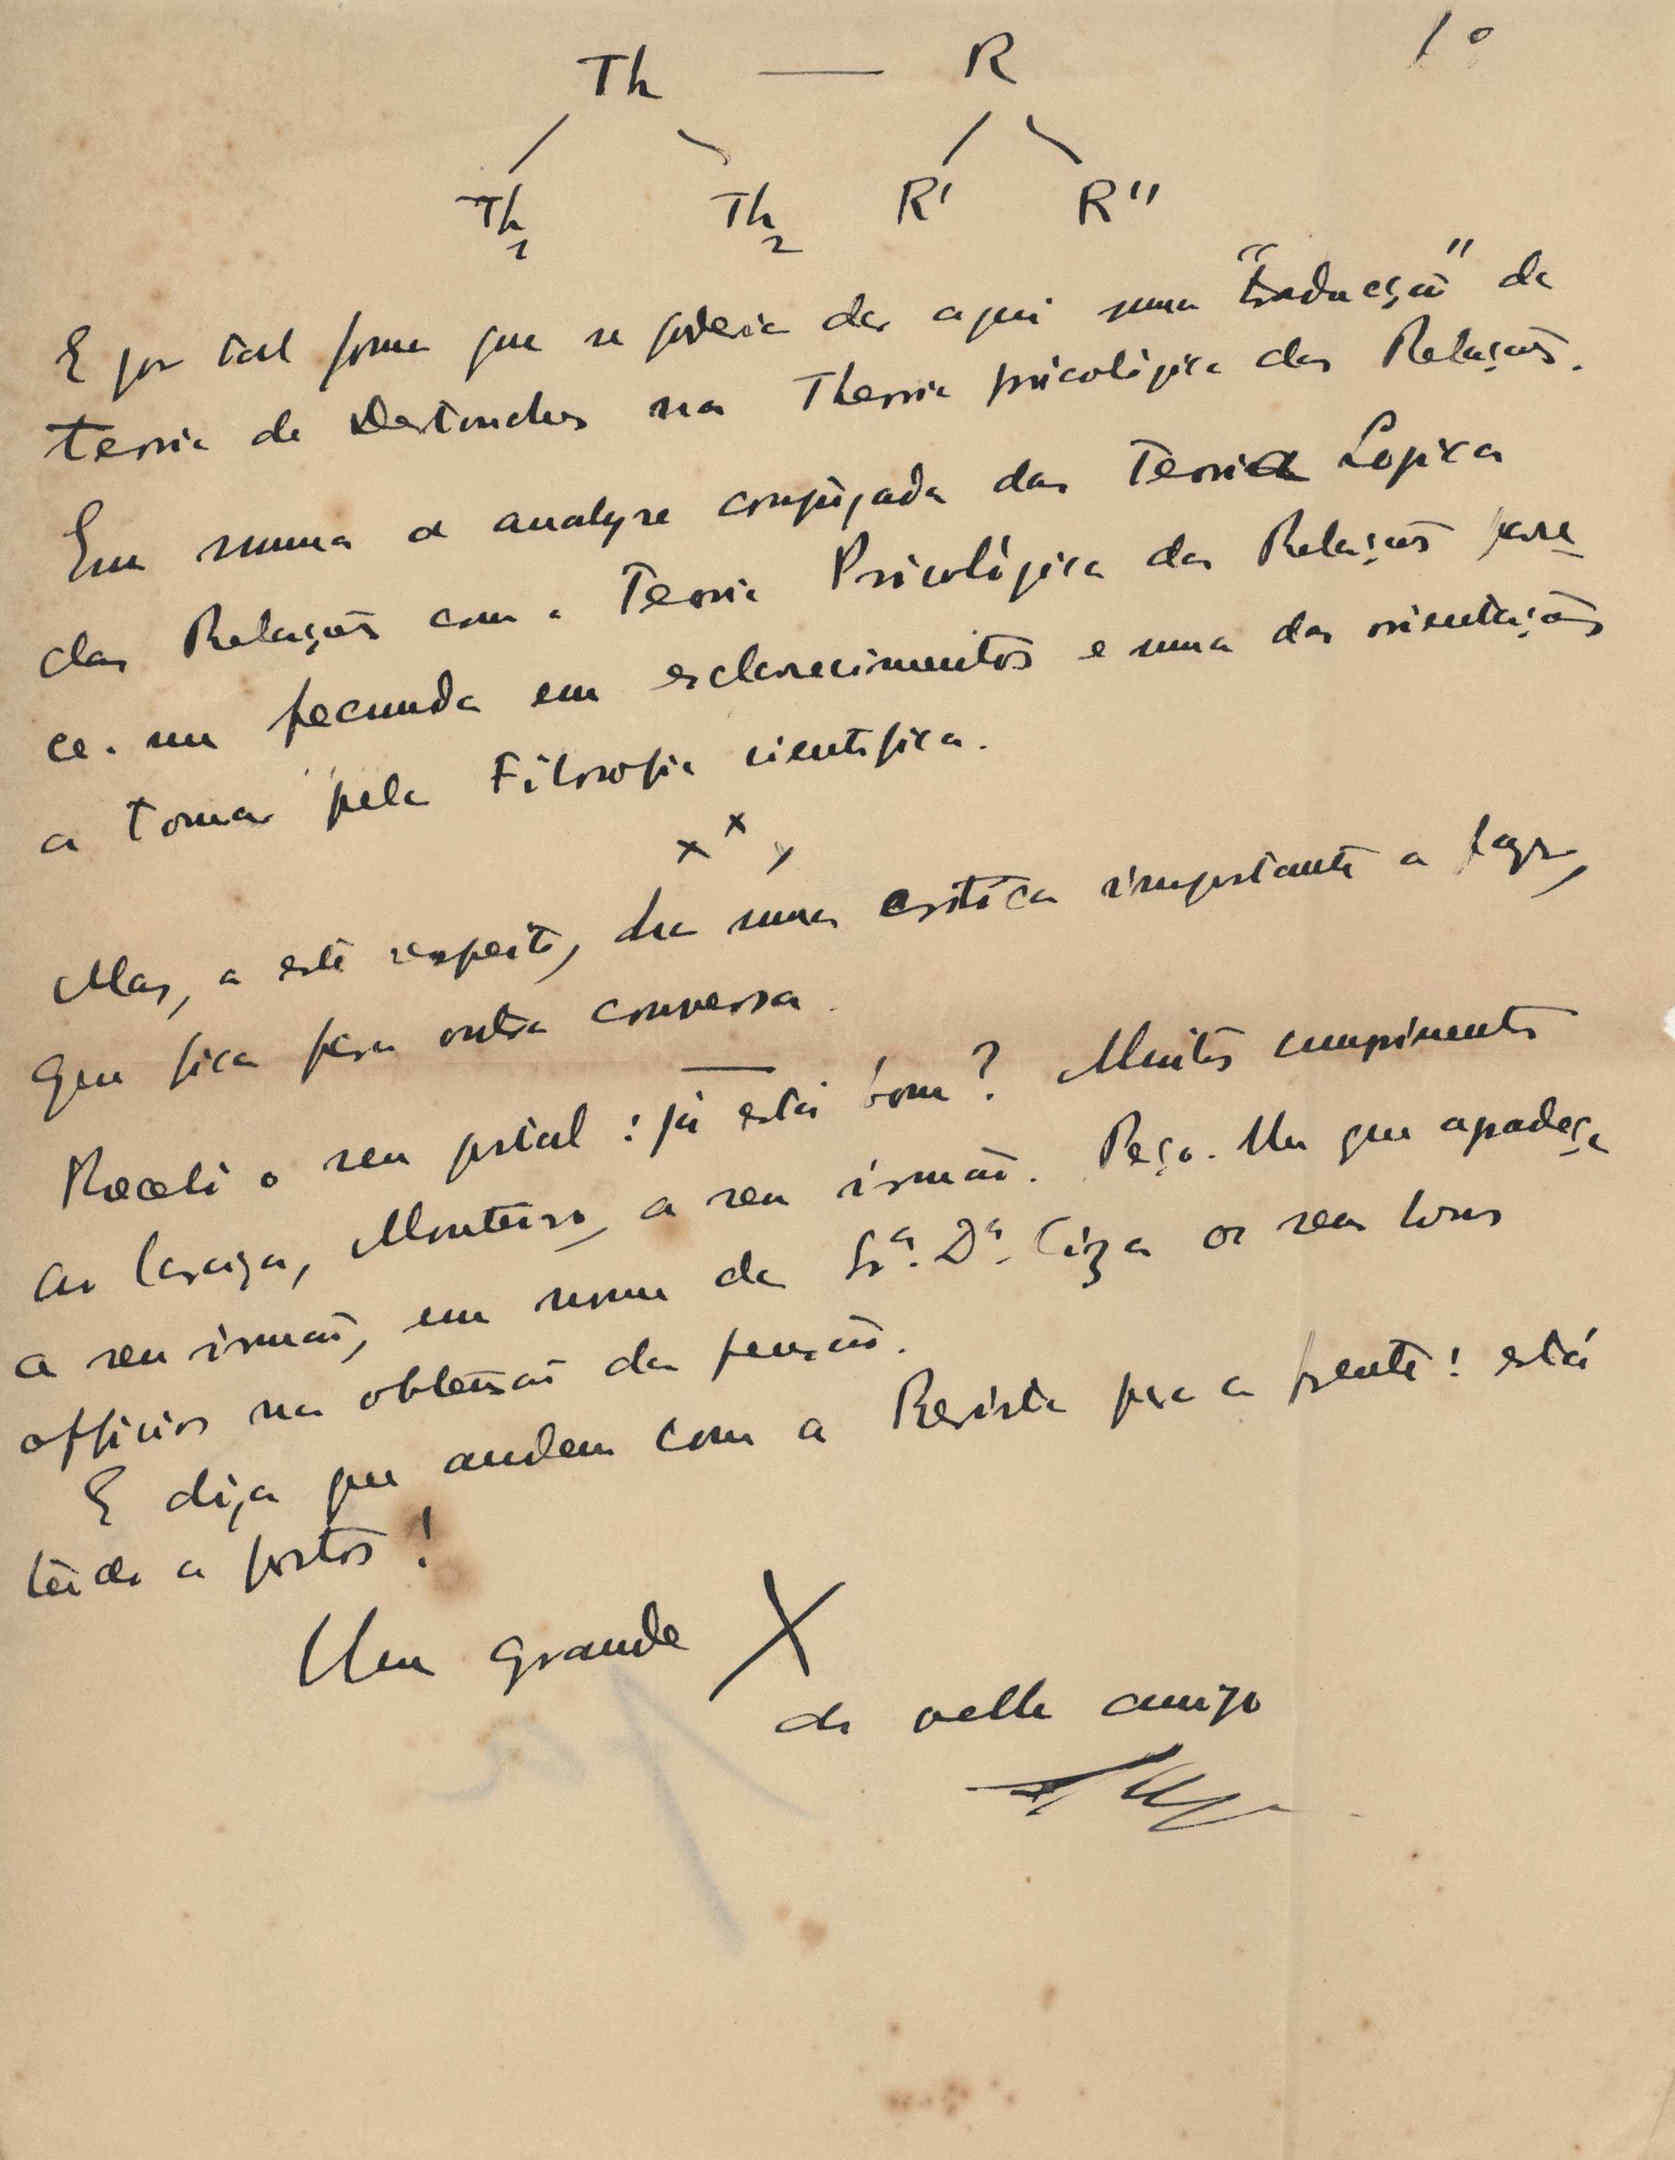 1º
Th — R
Th₁ Th₂ R' R''
E por tal forma que se poderia dar aqui uma "traducção" da
teoria de Destouches na Theoria psicológica das Relações.
Em summa a analyse conjugada da Teoria Logica
das Relações com a Teoria Psicológica das Relações pare
ce-me fecunda em esclarecimentos e uma das orientações
a tomar pela Filosofia cientifica.
x x x
Mas, a este respeito, ha uma critica importante a fazer,
que fica para outra conversa.
Recebi o seu postal: já está bom? Muitos cumprimentos
ao Caraça, Monteiro, a seu irmão. Peço-lhe que agradeça
a seu irmão, em nome da Sr.ª D.ª os seus bons
officios na obtenção da pensão.
E diga que andem com a Revista para a frente! está
tudo a postos!
Um grande X
do velho amigo